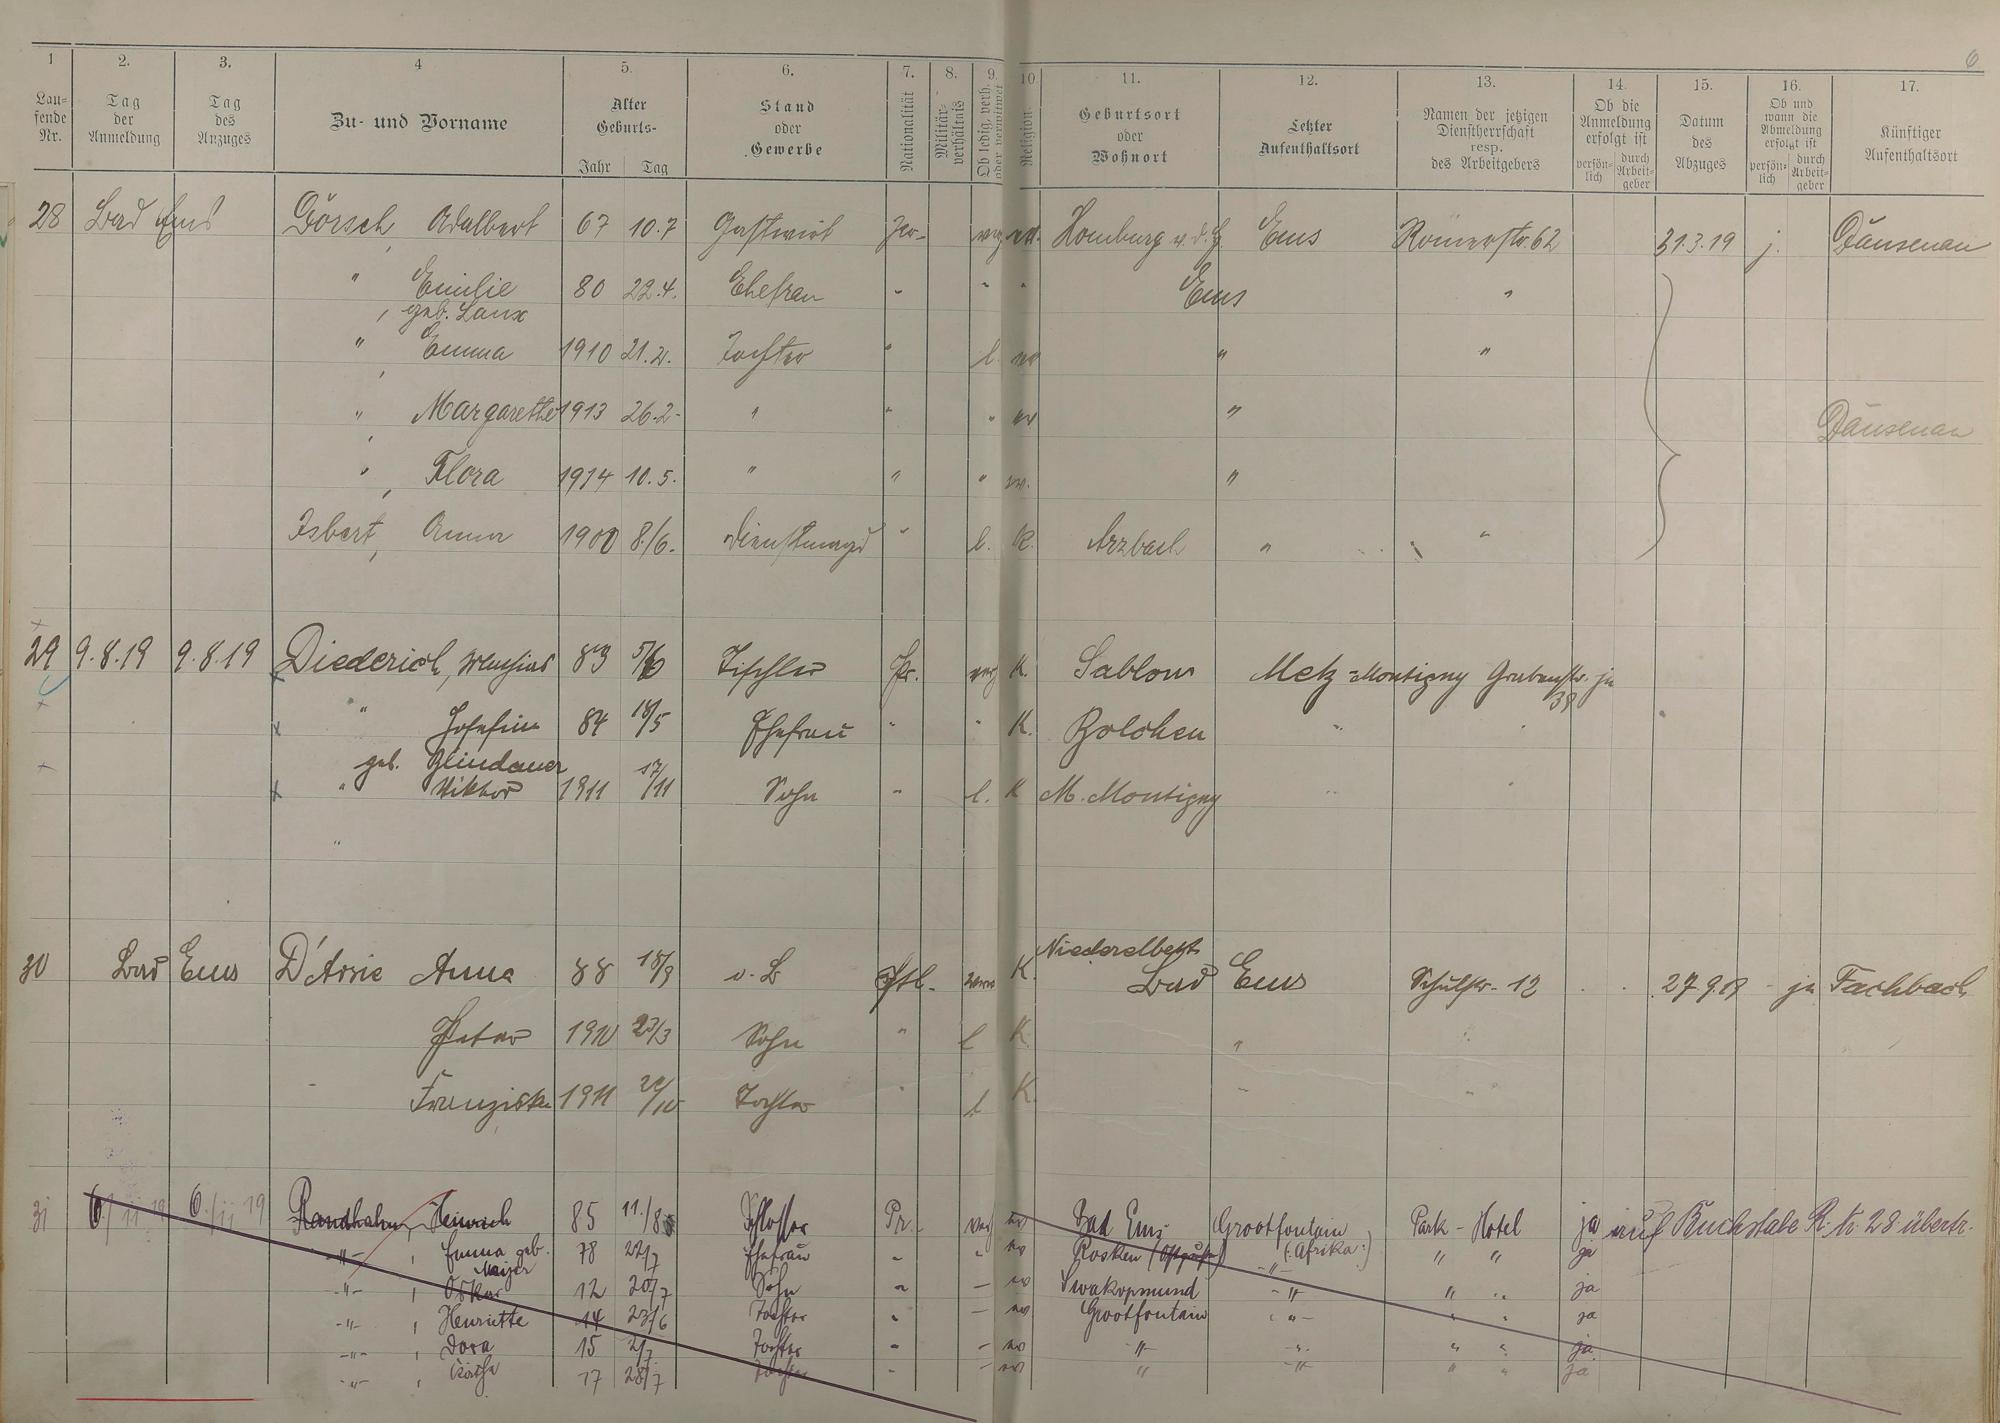 6
1 2. 3. 4 5. 6. 7. 8. 9. 10 11. 12. 13. 14. 15. 16. 17.
Lau-
fende
Nr.
Tag
der
Anmeldung
Tag
des
Anzuges
Zu- und Vorname
Alter
Geburts-
Jahr Tag
Stand
oder
Gewerbe
Nationalität
Militär-
verhältnis
Ob ledig, verh.
oder verwitwet
Religion
Geburtsort
oder
Wohnort
Letzter
Aufenthaltsort
Namen der jetzigen
Dienstherrschaft
resp.
des Arbeitgebers
Ob die
Anmeldung
erfolgt ist
persön-
lich
durch
Arbeit-
geber
Datum
des
Abzuges
Ob und
wann die
Abmeldung
erfolgt ist
persön-
lich
durch
Arbeit-
geber
Künftiger
Aufenthaltsort
28 Bad Ems Görsch, Adalbert 67 10.7 Gastwirt ev. Homburg v. d. H Ems Römerstr. 62 31.3.19 j. Dausenau
" Emilie 80 22.4. Ehefrau " " " Ems "
, geb. Laux
" Emma 1910 21.2. Tochter " l. ev " "
" Margarethe 1913 26.2. " " " ev " Dausenau
" , Flora 1914 10.5. " " " ev. "
Isbert, Anna 1900 8/6. Dienstmagd " l. K. Arzbach " "
29 9.8.19 9.8.19 Diederich, 83 5/6 Tischler Pr. K. Sablon Metz-Montigny Grubenstr. ja
39
" Josefine 84 18/5 Ehefrau " " K. Bolchen " "
geb. Blindauer
" Viktor 1911 17/11 Sohn " l. K M. Montigny " "
"
30 Bad Ems D'Arrie Anna 88 18/9 o. B Itl. verw K. Niederelbert
Bad Ems Schulstr. 12 27.9.19 - ja Fachbach
Peter 1910 23/3 Sohn " l K. " "
Franziska 1911 Tochter " l K. " "
31 6/11 19 6/11 19 Randhahn, Heinrich 85 11./8 Schlosser Pr. ev Bad Ems Grootfontain Park-Hotel ja auf Buchstabe R. Nr. 28 übertr.
-"- , Emma geb. 78 22/7 Ehefrau " " ev Rosken (Ostpreuß) (:Afrika:) " " ja
Meyer
-"- , Oskar 12 20/7 Sohn " – ev Swakopmund -"- " " ja
-"- , Henriette 14 23/6 Tochter " – ev Grootfontain -"- " " ja
-"- , Dora 15 2/7 Tochter " – ev -"- -"- " " ja
-"- , Käthe 17 28/7 Tochter " – ev " -"- " " ja